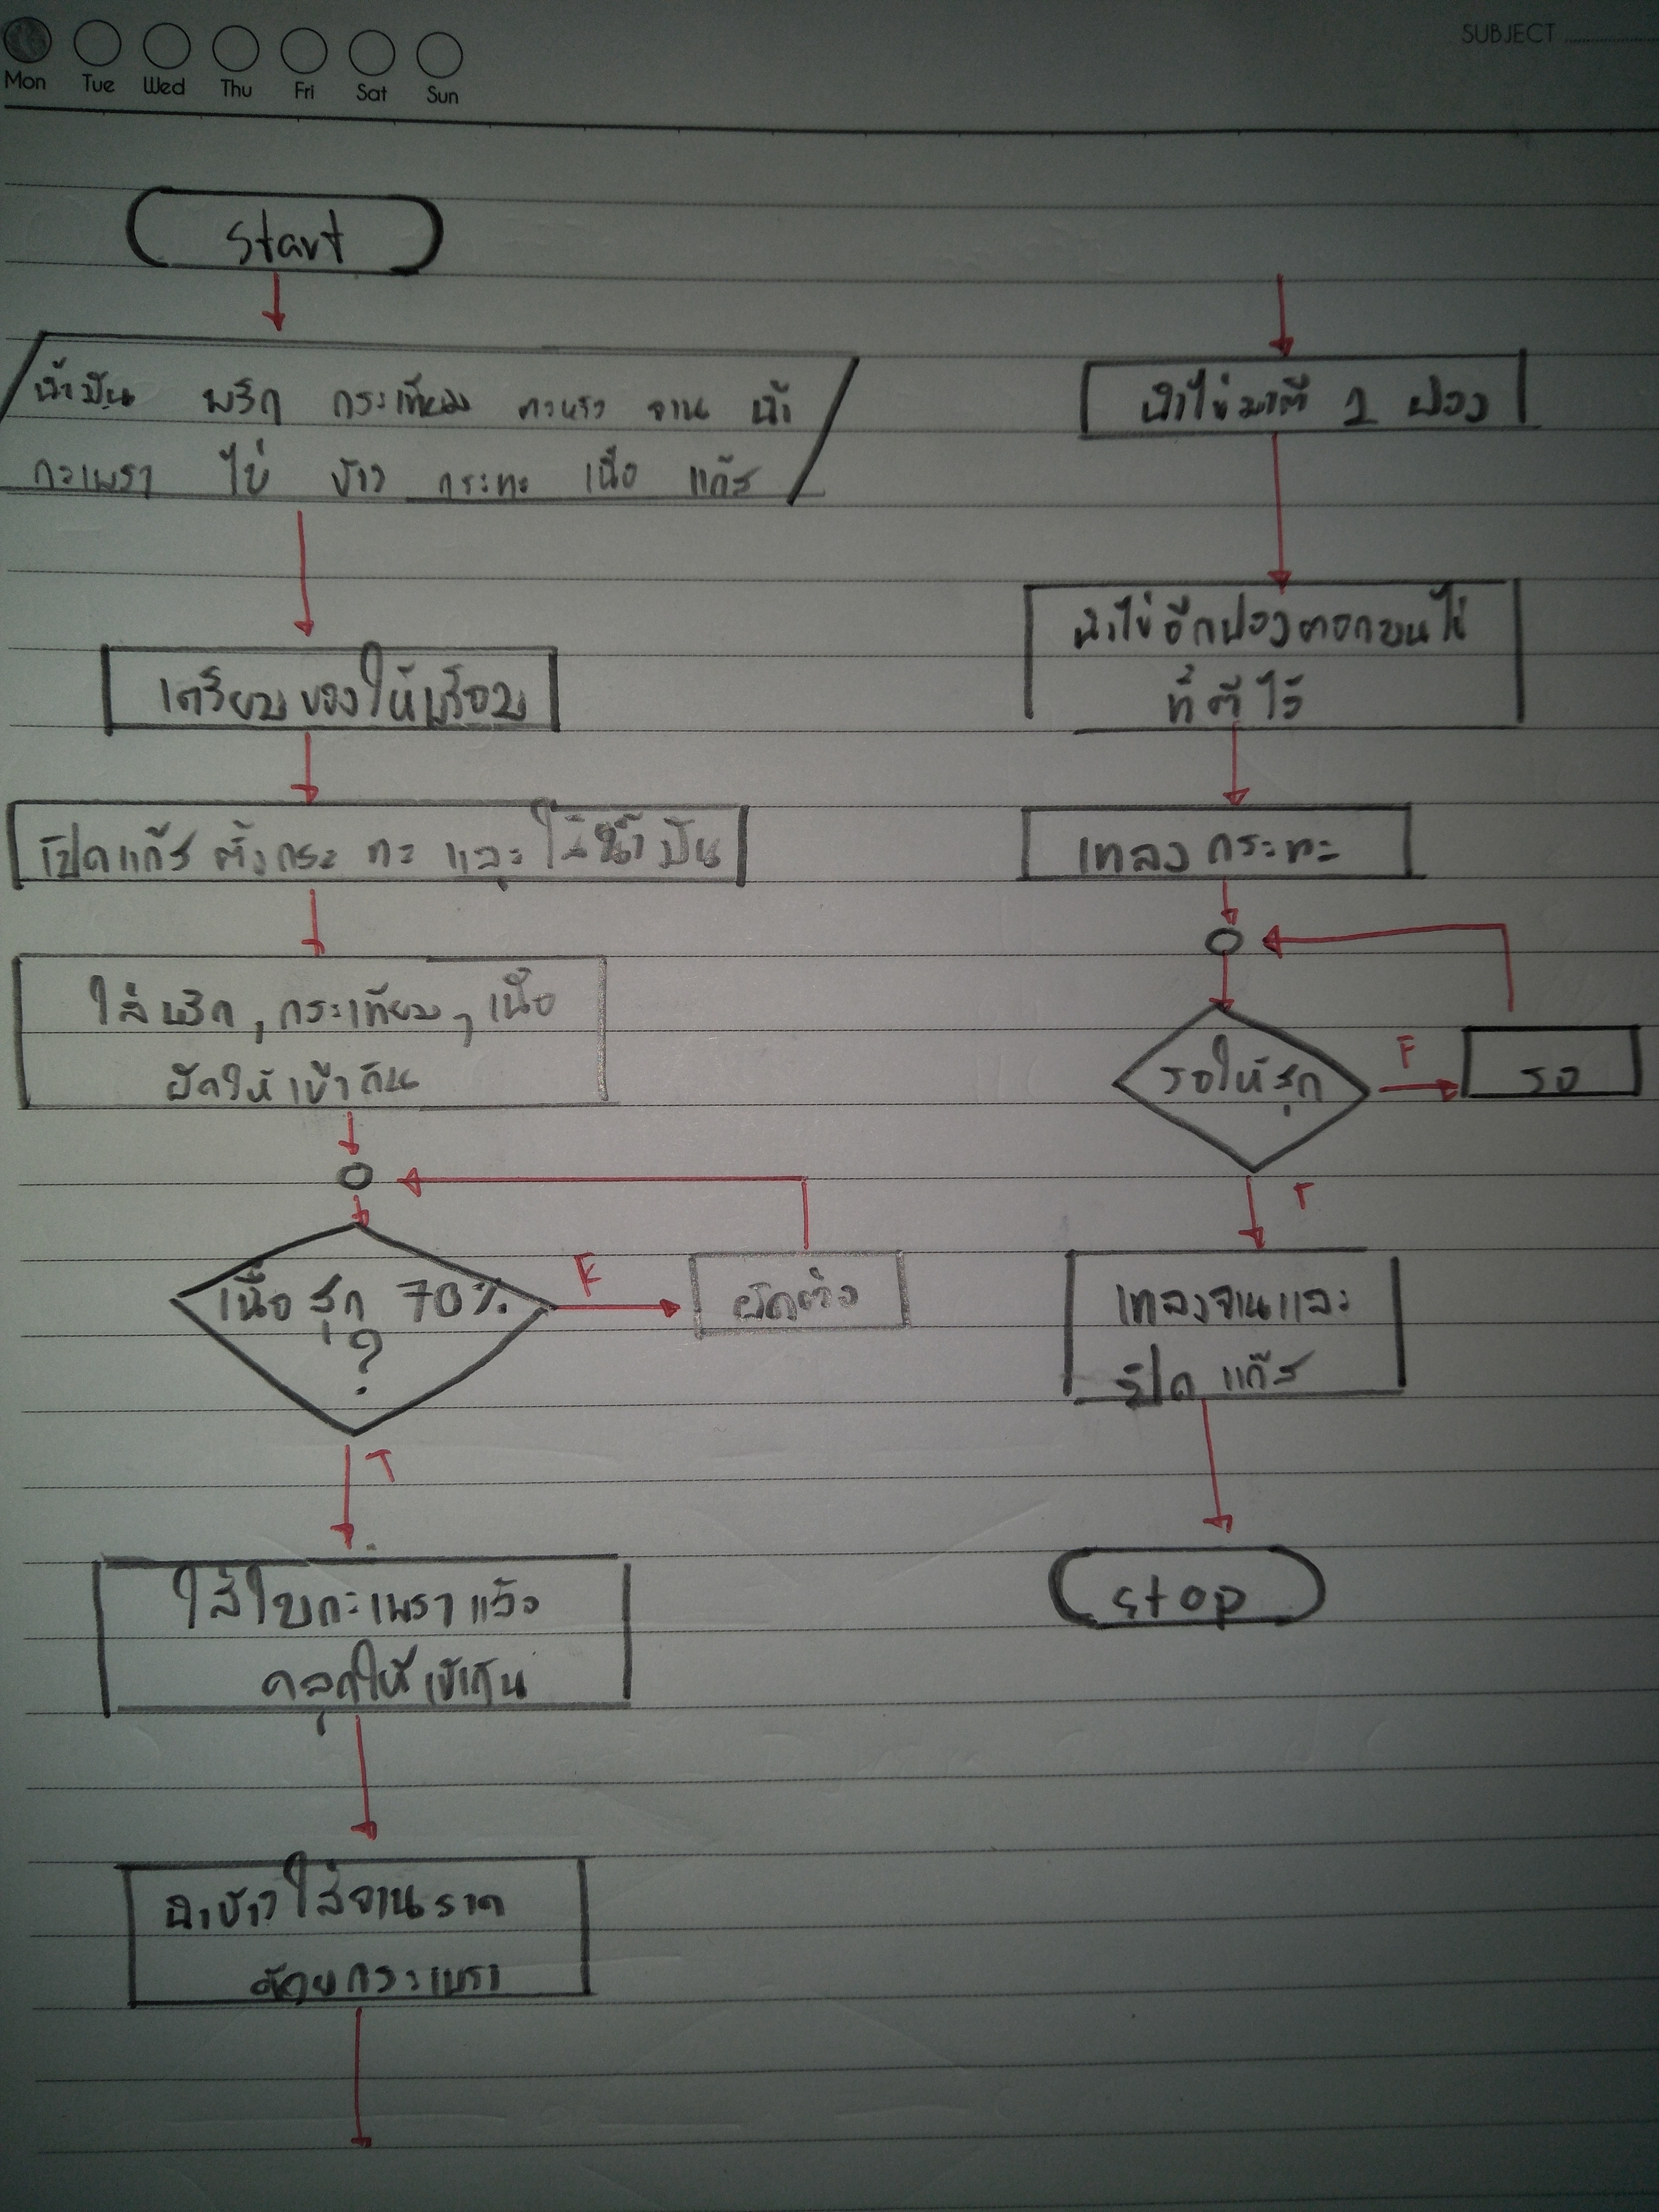 Mon Tue Wed Thu Fri Sat Sun
SUBJECT
start
น้ำมัน พริก กระเทียม ตะหลิว จาน น้ำ
กะเพรา ไข่ ข้าว กระทะ เนื้อ แก๊ส
เตรียมของให้พร้อม
เปิดแก๊ส ตั้งกระทะ และใส่น้ำมัน
ใส่พริก, กระเทียม, เนื้อ
ผัดให้เข้ากัน
เนื้อสุก 70%
?
F
ผัดต่อ
T
ใส่ใบกะเพราแล้ว
คลุกให้เข้ากัน
นำข้าวใส่จานราด
ด้วยกระเพรา
นำไข่มาตี 1 ฟอง
นำไข่อีกฟองตอกบนไข่
ที่ตีไว้
เทลงกระทะ
รอให้สุก
F
รอ
T
เทลงจานและ
ปิดแก๊ส
stop